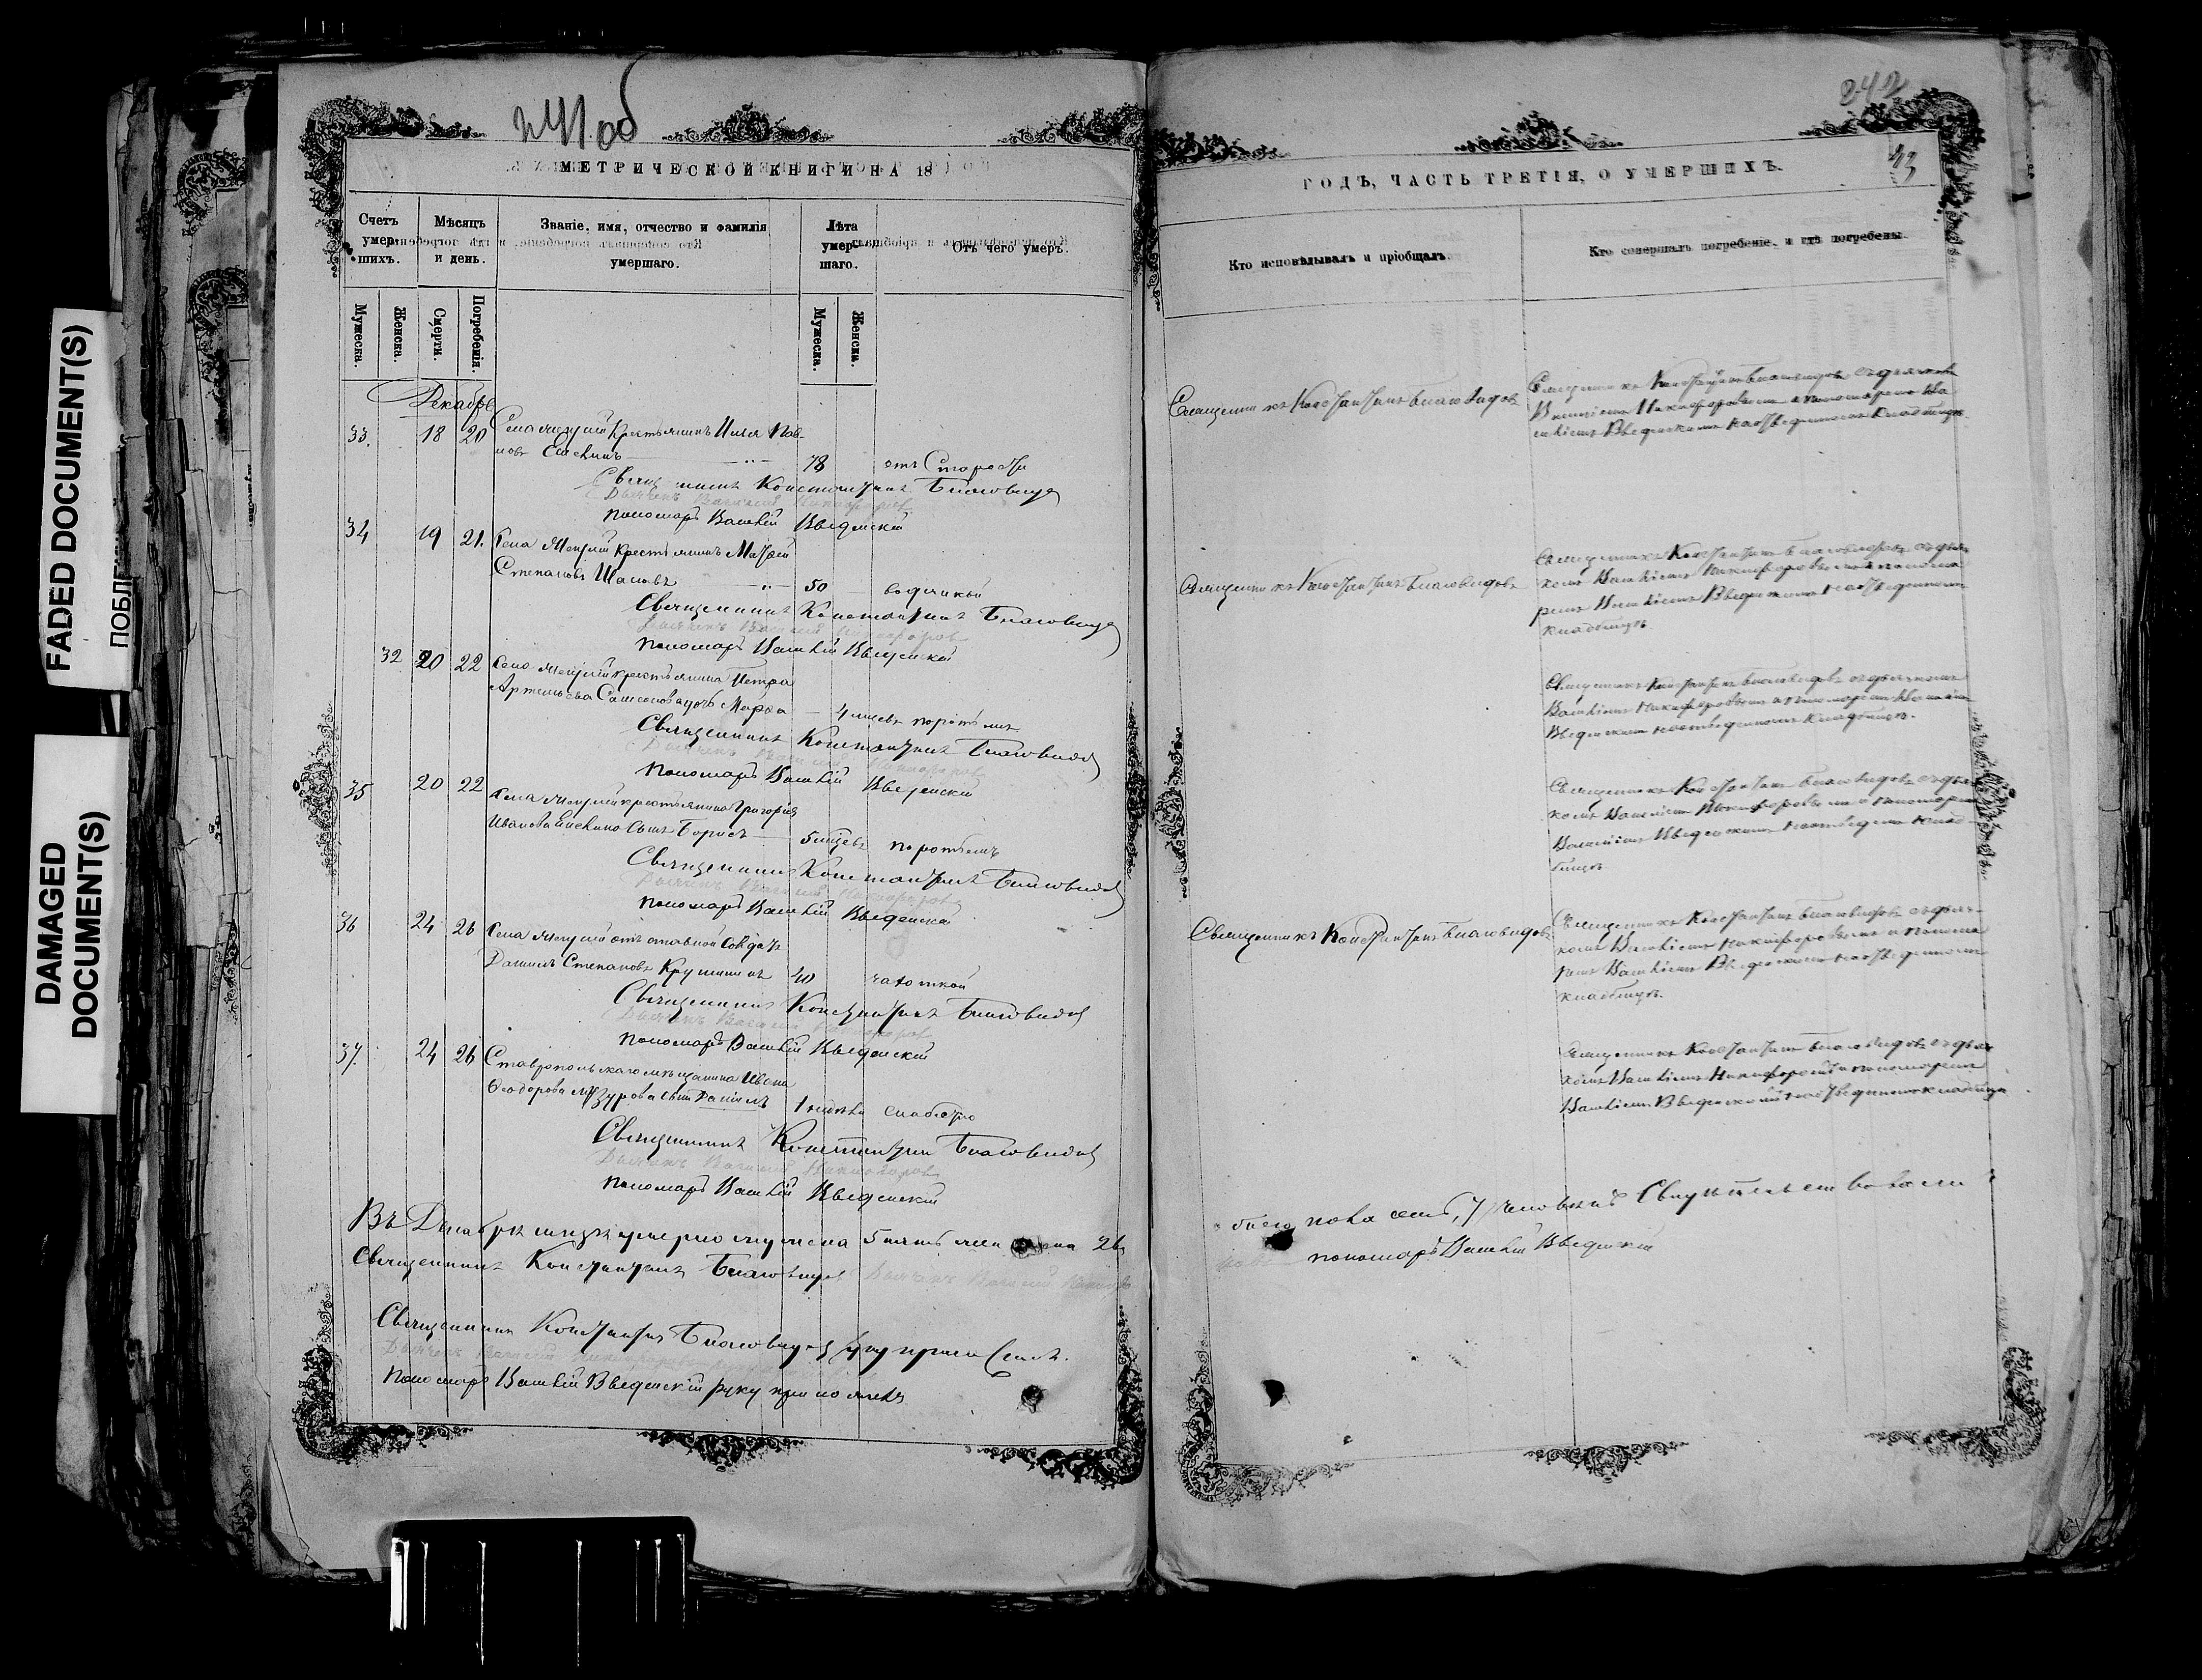 FADED DOCUMENT(S)
DAMAGED
DOCUMENT(S)
241 об
МЕТРИЧЕСКОЙ КНИГИ НА 18
Счетъ
умер-
шихъ.
Мѣсяцъ
и день.
Званіе, имя, отчество и фамилія
умершаго.
Лѣта
умер-
шаго.
Отъ чего умеръ.
Мужеска.
Женска.
Смерти.
Погребенія.
Мужеска.
Женска.
Декабрь
33. 18 20 Села крестьянинъ Илья Пав-
ловъ 78 отъ Старости
Священникъ Константинъ Благовидовъ
Дьячекъ Василій Никифоровъ
пономарь Василій Введенскій
34 19 21. Села крестьянинъ Матвей
Степановъ 50 водяной
Священникъ Константинъ Благовидовъ
Дьячекъ Василій Никифоровъ
пономарь Василій Введенскій
32 20 22 Села крестьянина Петра
Артемьева Самсонова дочь Марфа 4 месяц
Священникъ Константинъ Благовидовъ
Дьячекъ Василій Никифоровъ
пономарь Василій Введенскій
35 20 22 Села крестьянина Григорія
Иванова сынъ Борисъ 5 месяц
Священникъ Константинъ Благовидовъ
Дьячекъ Василій Никифоровъ
пономарь Василій Введенскій
36 24 26 Села отставной Солдатъ
Даніилъ Степановъ 40 чахоткой
Священникъ Константинъ Благовидовъ
Дьячекъ Василій Никифоровъ
пономарь Василій Введенскій
37. 24 26 Ставропольскаго мѣщанина Ивана
Феодорова сынъ Даніилъ 1 недѣли слабости
Священникъ Константинъ Благовидовъ
Дьячекъ Василій Никифоровъ
пономарь Василій Введенскій
Въ Декабрѣ умерло мужеска 5 пять 2
Священникъ Константинъ Благовидовъ Дьячекъ Василій
Священникъ Константинъ Благовидовъ руку приложилъ.
Дьячекъ Василій Никифоровъ
пономарь Василій Введенскій руку приложилъ
242
43
ГОДЪ, ЧАСТЬ ТРЕТІЯ, О УМЕРШИХЪ.
Кто исповѣдывалъ и пріобщалъ.
Кто совершалъ погребеніе, и гдѣ погребены.
Священникъ Константинъ Благовидовъ
Священникъ Константинъ Благовидовъ съ дьячкомъ
Василіемъ Никифоровымъ и пономаремъ Ва
силіемъ Введенскимъ на отведенномъ кладбищѣ.
Священникъ Константинъ Благовидовъ
Священникъ Константинъ Благовидовъ съ дьяч
комъ Василіемъ Никифоровымъ и понома
ремъ Василіемъ Введенскимъ на отведенномъ
кладбищѣ.
Священникъ Константинъ Благовидовъ съ дьячкомъ
Василіемъ Никифоровымъ и пономаремъ Василіемъ
Введенскимъ на отведенномъ кладбищѣ.
Священникъ Константинъ Благовидовъ съ дьяч
комъ Василіемъ Никифоровымъ и пономаремъ
Василіемъ Введенскимъ на отведенномъ клад
бищѣ
Священникъ Константинъ Благовидовъ
Священникъ Константинъ Благовидовъ съ дьяч-
комъ Василіемъ Никифоровымъ и понома
ремъ Василіемъ Введенскимъ на отведенномъ
кладбищѣ.
Священникъ Константинъ Благовидовъ съ дьяч
комъ Василіемъ Никифоровымъ и пономаремъ
Василіемъ Введенскимъ на отведенномъ кладбищѣ
пола семь, 7 человѣкъ Свидѣтельствовали
пономарь Василій Введенскій